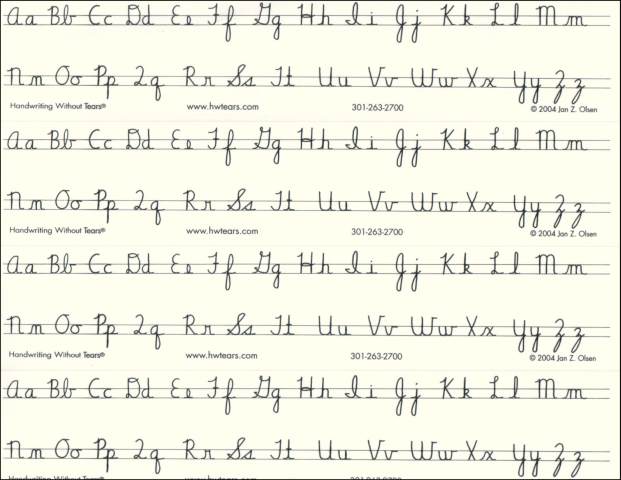 Aa Bb Cc Dd Ee Ff Gg Hh Ii Jj Kk Ll Mm
Nn Oo Pp Qq Rr Ss Tt Uu Vv Ww Xx Yy Zz
Handwriting Without Tears® www.hwtears.com 301-263-2700 © 2004 Jan Z. Olsen
Aa Bb Cc Dd Ee Ff Gg Hh Ii Jj Kk Ll Mm
Nn Oo Pp Qq Rr Ss Tt Uu Vv Ww Xx Yy Zz
Handwriting Without Tears® www.hwtears.com 301-263-2700 © 2004 Jan Z. Olsen
Aa Bb Cc Dd Ee Ff Gg Hh Ii Jj Kk Ll Mm
Nn Oo Pp Qq Rr Ss Tt Uu Vv Ww Xx Yy Zz
Handwriting Without Tears® www.hwtears.com 301-263-2700 © 2004 Jan Z. Olsen
Aa Bb Cc Dd Ee Ff Gg Hh Ii Jj Kk Ll Mm
Nn Oo Pp Qq Rr Ss Tt Uu Vv Ww Xx Yy Zz